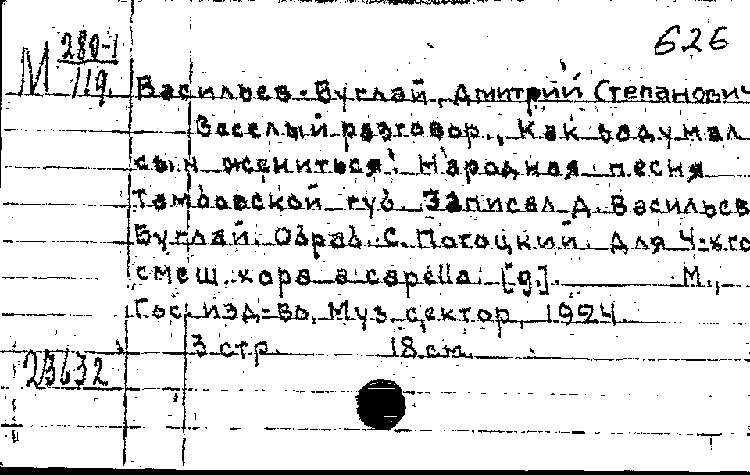 626
М 280-1
119.
Васильев-Буглай, Дмитрий Степанович
Веселый разговор., Как задумал
сын жениться. Народная песня
Тамбовской губ. Записал Д. Васильев
Буглай. Обраб. С. Потоцкий. Для 4-хго
смеш. хора a capella. [g.]. М.,
Гос. изд-во, Муз. сектор, 1924.
3 стр. 18 см.
23632